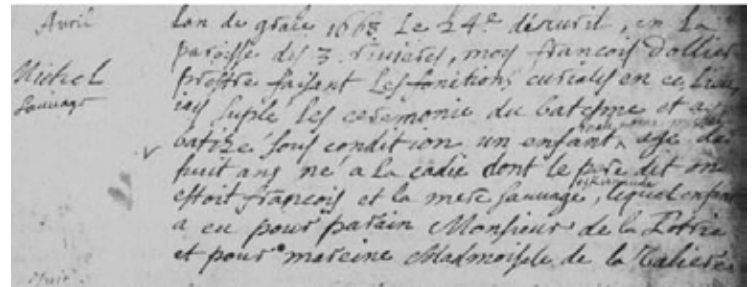 Avril
Michel
Sauvage
Lan de grace 1668 Le 24e davril, en La
paroisse des 3. rivieres, moy francois Dollier
prestre faisant les fonctions curiales en ce lieu
iay suplé les ceremonie du batesme et ay
batizé sous condition un enfant, age de
huit ans né a La cadie dont le pere dit on
estoit francois et la mere sauvage, lequel enfant
a eu pour parain Monsieur de la
et pour mareine Madmoiselle de la